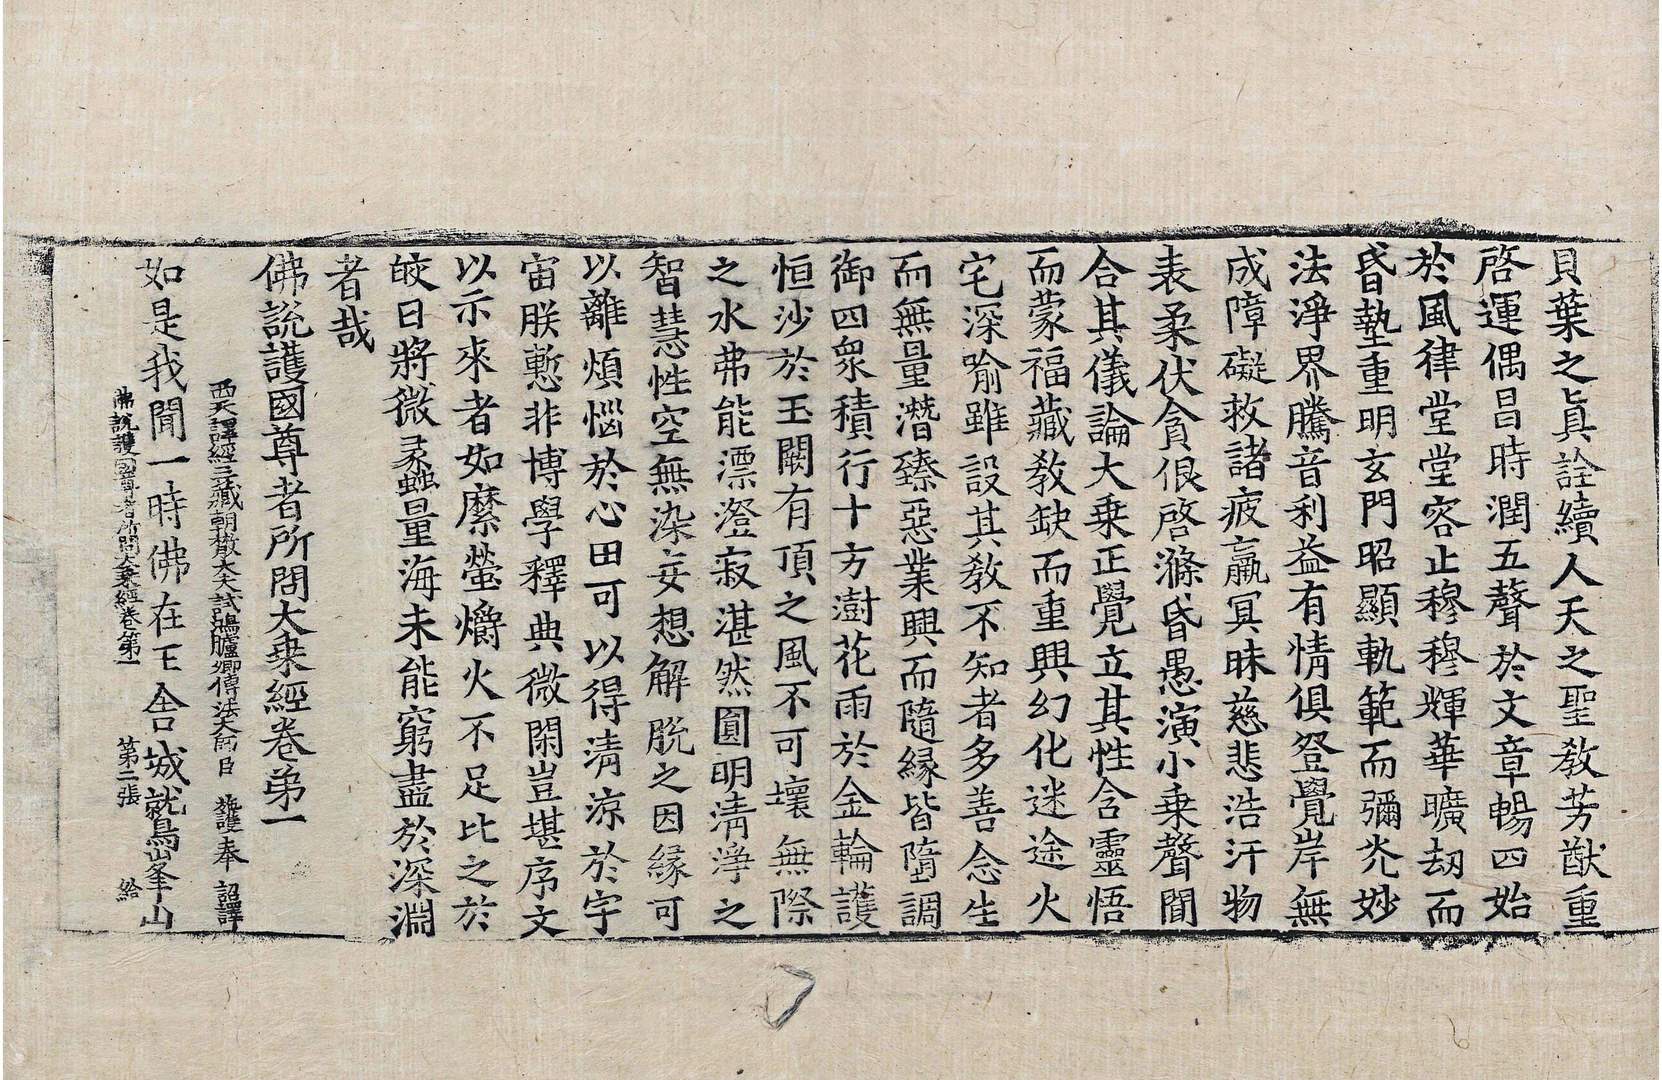 貝葉之眞詮續人天之聖教芳猷重
啓運偶昌時潤五聲於文章暢四始
於風律堂堂容止穆穆輝華曠劫而
昏墊重明玄門昭顯軌範而彌光妙
法淨界騰音利益有情俱登覺岸無
成障礙救諸疲羸冥昧慈悲浩汗物
表柔伏貪佷啓滌昏愚演小乗聲聞
合其儀論大乗正覺立其性含靈悟
而蒙福藏教缺而重興幻化迷途火
宅深喻雖設其教不知者多善念生
而無量潛臻惡業興而隨緣皆墮調
御四衆積行十方澍花雨於金輪護
恒沙於玉闕有頂之風不可壞無際
之水弗能漂澄寂湛然圓明清淨之
智慧性空無染妄想解脫之因緣可
以離煩惱於心田可以得清涼於宇
宙朕慙非博學釋典微閑豈堪序文
以示來者如縻螢爝火不足比之於
皎日將微蠡量海未能窮盡於深淵
者哉
佛說護國尊者所問大乗經卷第一
西天譯經三藏朝散大夫試鴻臚卿傳法大師臣 施護奉 詔譯
如是我聞一時佛在王舍城鷲峯山
佛說護國尊者所問大乗經卷第一 第二張 給